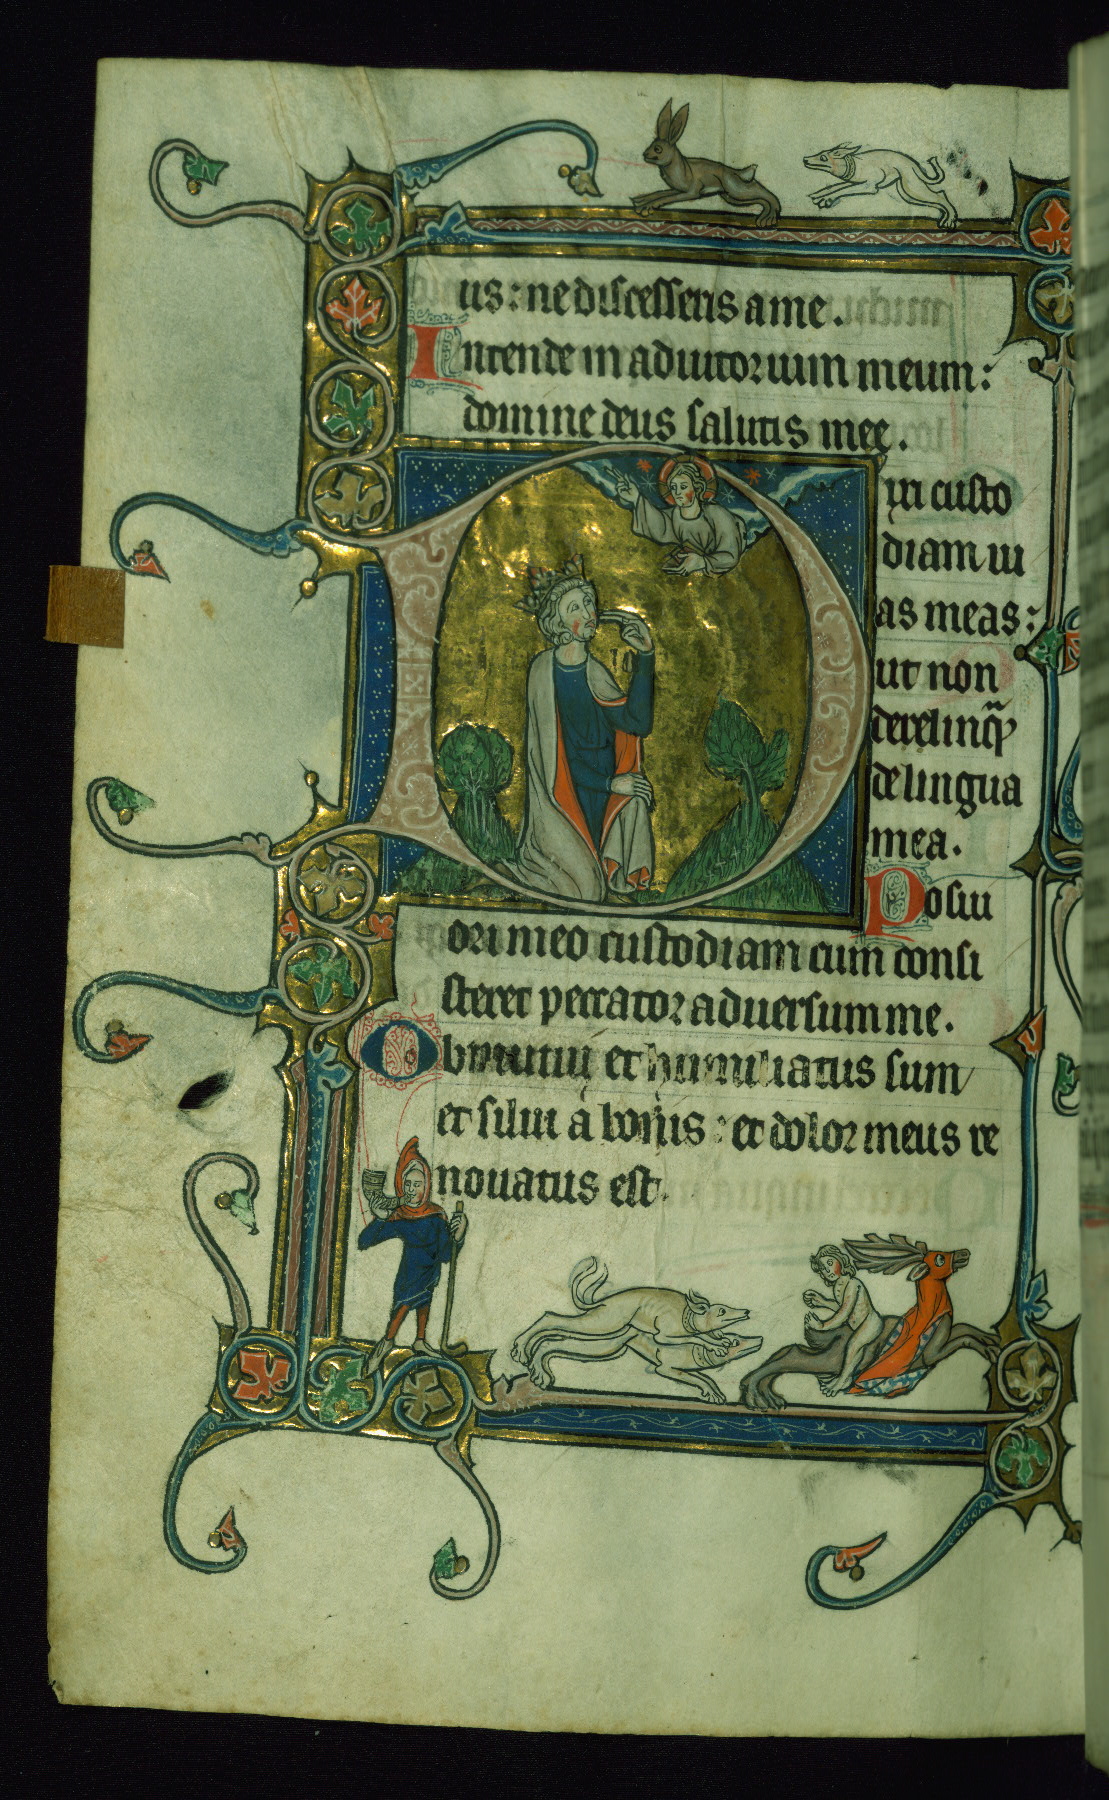 us : ne discesseris a me .
Intende in adiutorium meum :
domine deus salutis mee .
Dixi custo
diam ui
as meas :
ut non
derelinqā
de lingua
mea .
Posui
ori meo custodiam cum consi
steret peccator aduersum me .
Obmutui et humiliatus sum
et silui a bonis : et dolor meus re
nouatus est .